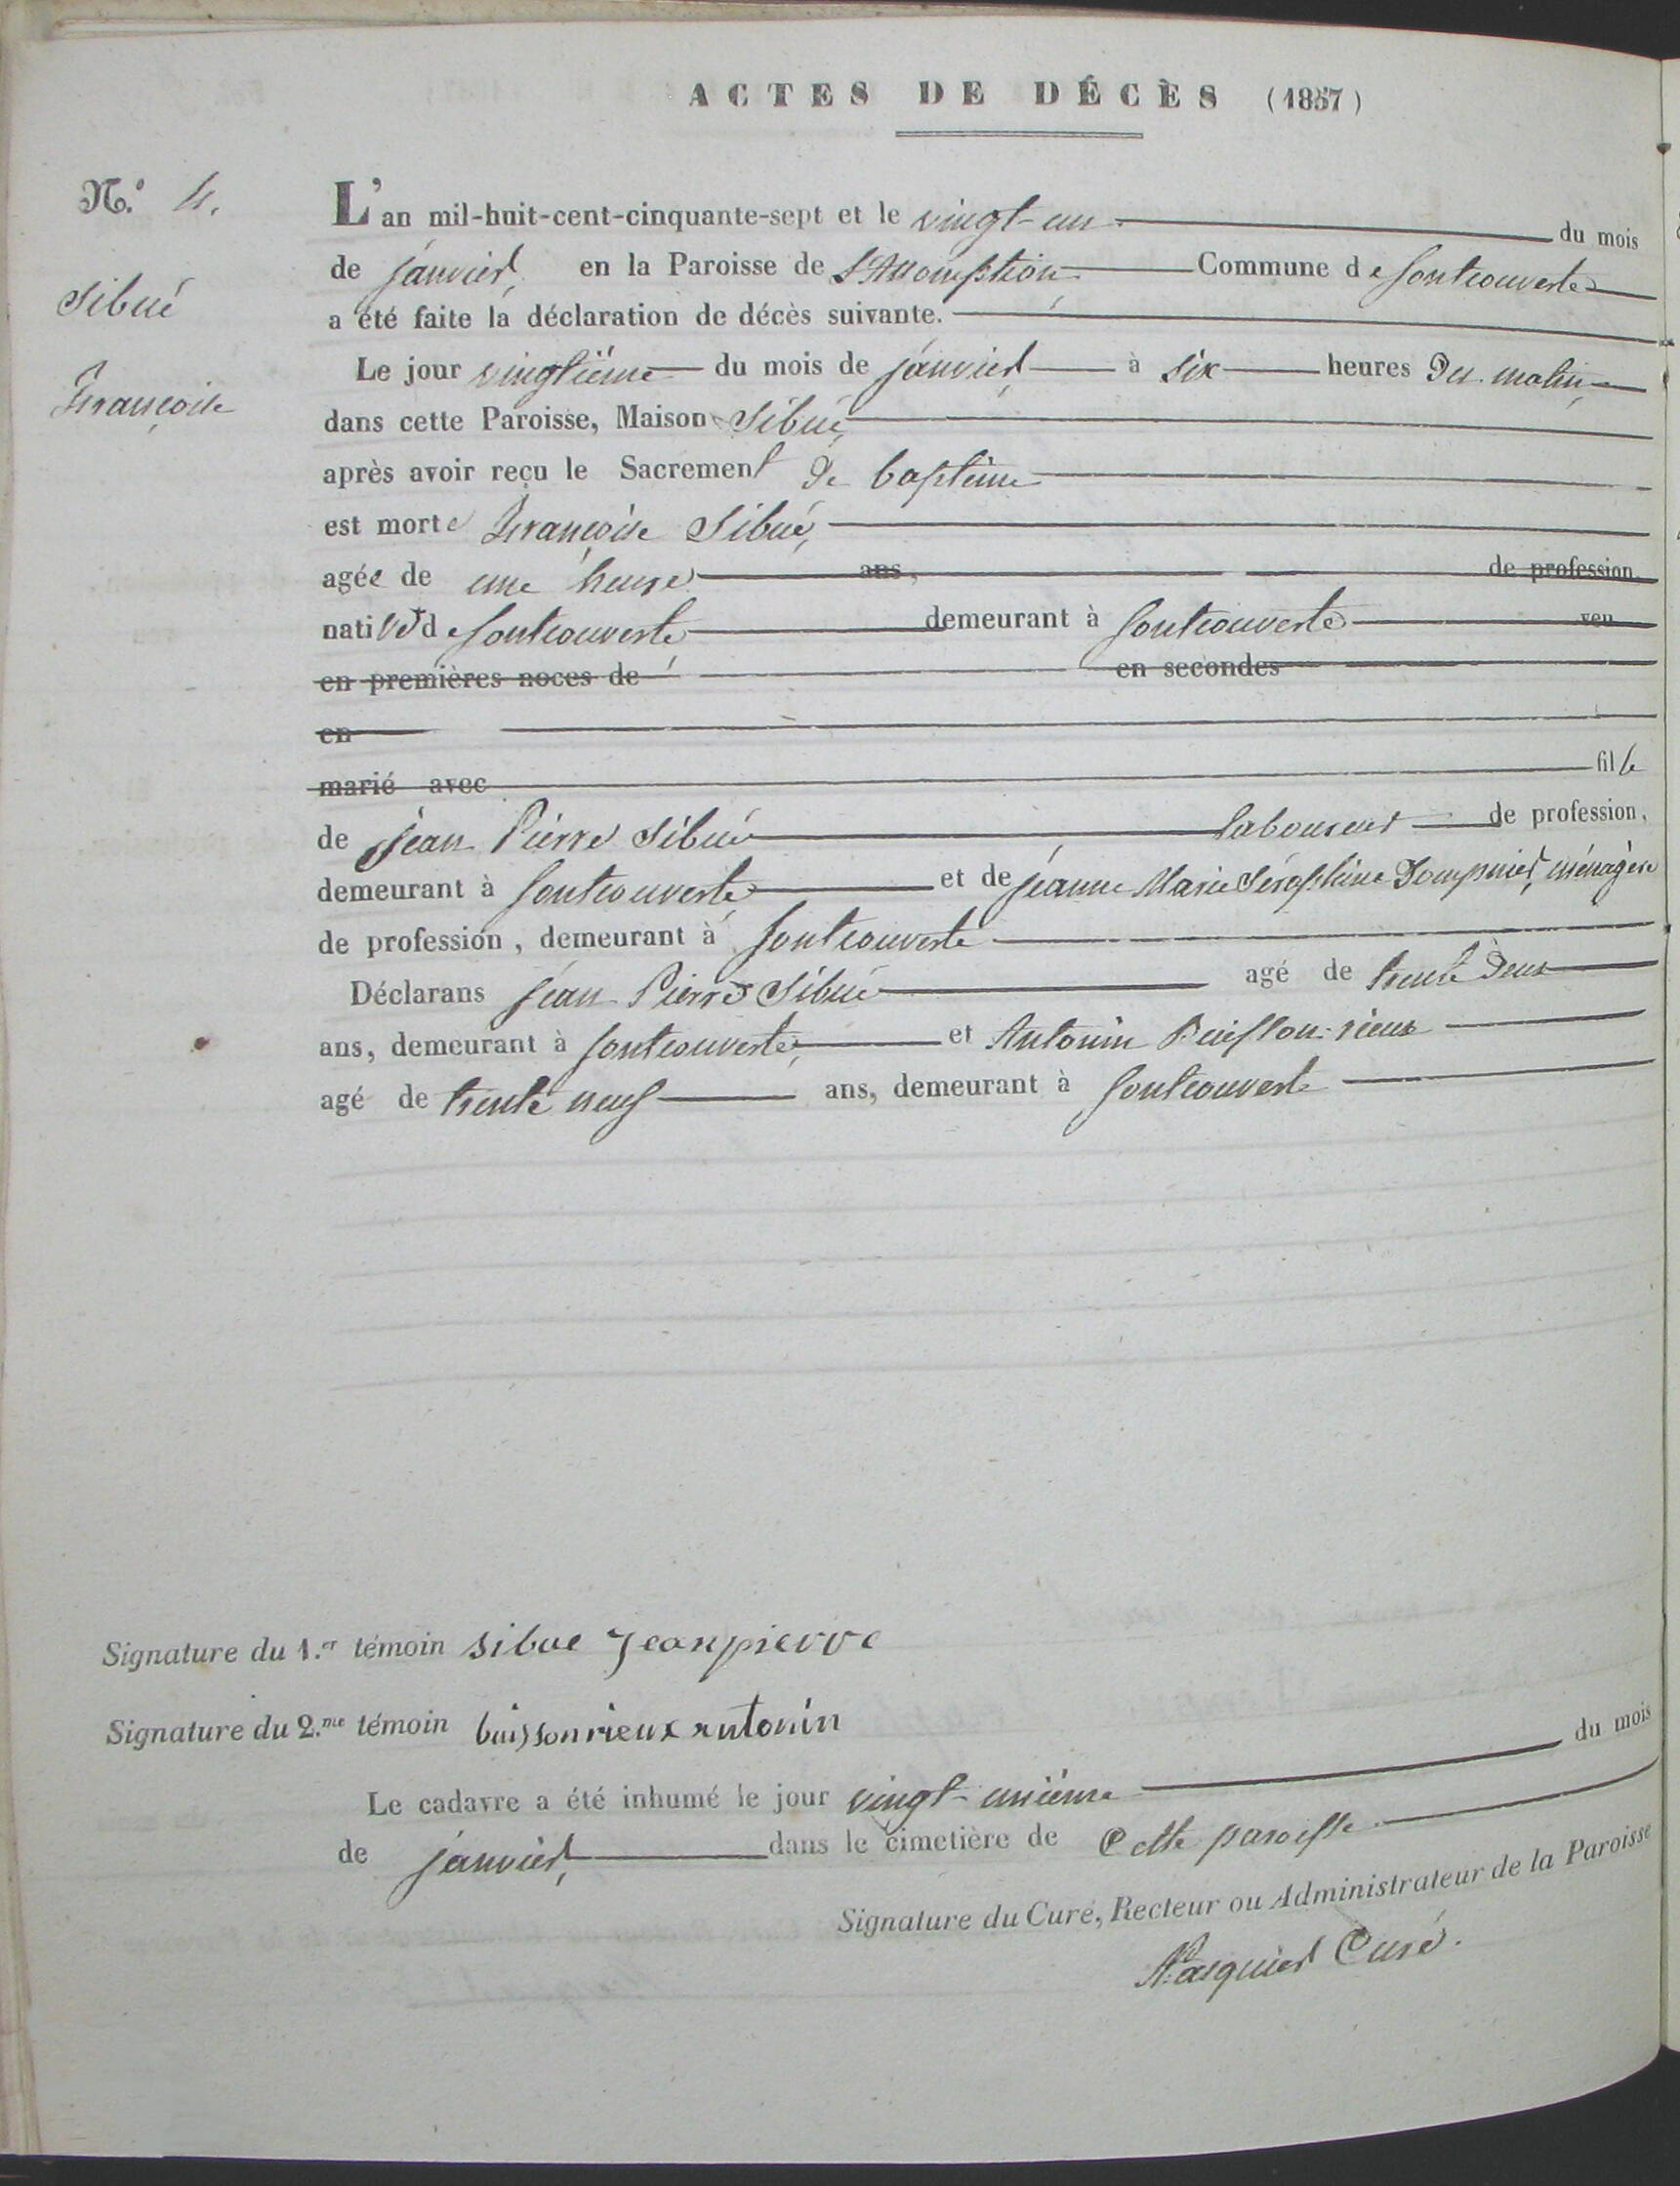 ACTES DE DÉCÈS (1857)
N.º 4.
L'an mil-huit-cent-cinquante-sept et le vingt-un du mois
de janvier, en la Paroisse de l'Assomption Commune de fontcouverte
Sibué
a été faite la déclaration de décès suivante.
Le jour vingtième du mois de janvier à six heures du matin,
Françoise
dans cette Paroisse, Maison Sibué,
après avoir reçu le Sacrement de baptême
est morte Françoise Sibué,
agée de une heure ans, de profession
native de fontcouverte, demeurant à fontcouverte veu
en premières noces de en secondes
en
marié avec fille
de jean Pierre Sibué laboureur de profession,
demeurant à fontcouverte, et de jeanne Marie Séraphine Dompnier, ménagère
de profession, demeurant à fontcouverte
Déclarans jean Pierre Sibué agé de trente deux
ans, demeurant à fontcouverte, et Antonin Buisson-rieux
agé de trente neuf ans, demeurant à fontcouverte
Signature du 1.er témoin sibue Jeanpierre
Signature du 2.me témoin buissonrieux antonin
Le cadavre a été inhumé le jour vingt-unième du mois
de janvier, dans le cimetière de Cette paroisse
Signature du Curé, Recteur ou Administrateur de la Paroisse
Curé.